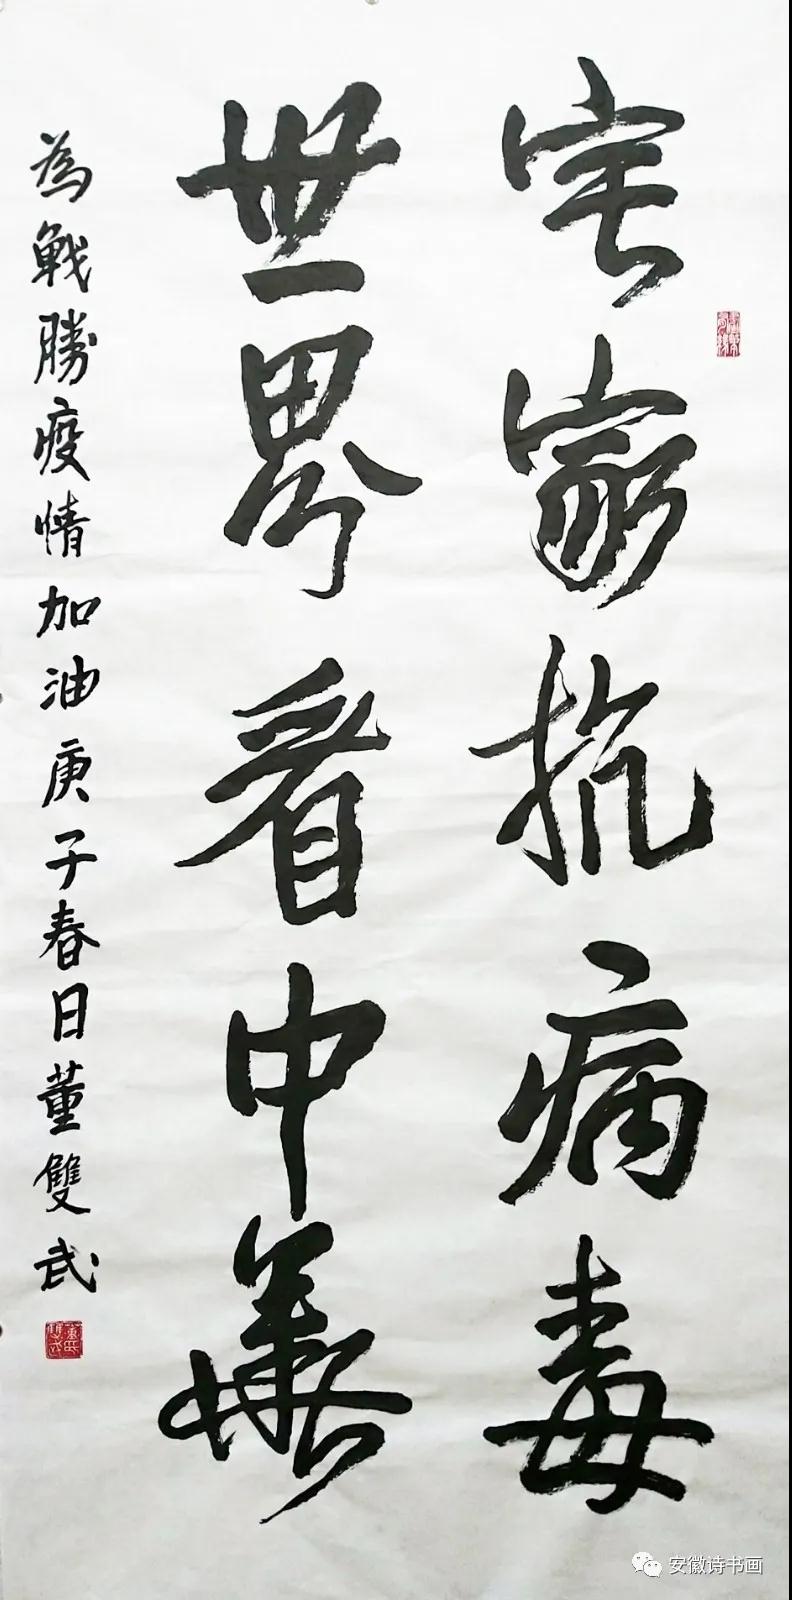 宅家抗病毒
世界看中華
為戰勝疫情加油庚子春日董雙武
安徽诗书画